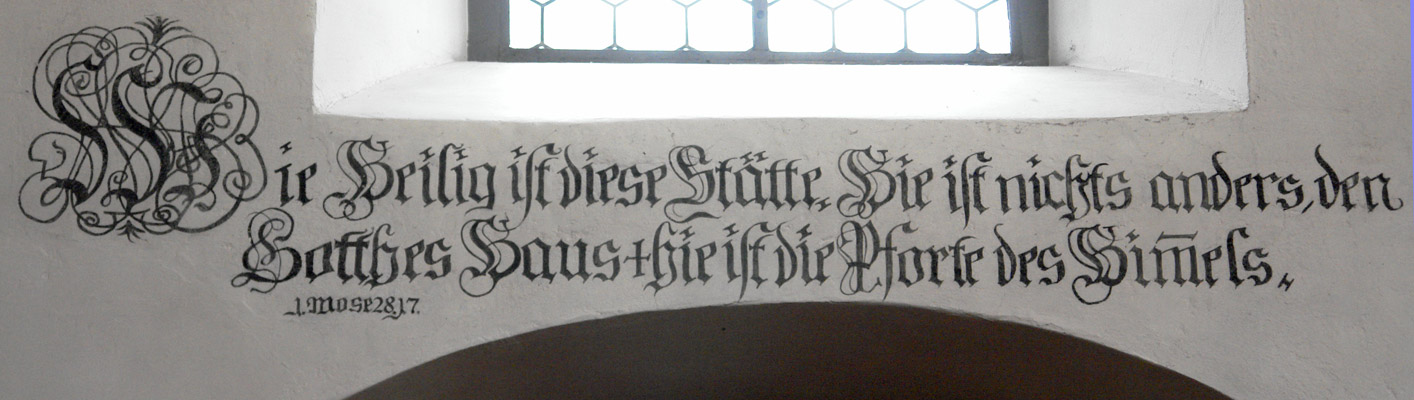 Wie Heilig ist diese Stätte, Hie ist nichts anders, den
Gotthes Haus + hie ist die Pforte des Him̅els.
1. Mose 28,17.